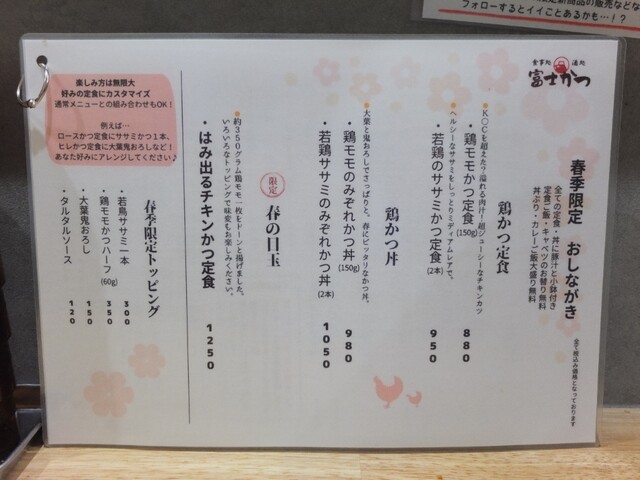 フォローするとイイことあるかも…！？
食事処 酒処
富士かつ
春季限定 おしながき
全ての定食・丼に豚汁と小鉢付き
定食ご飯・キャベツのお替り無料
丼ぶり・カレーご飯大盛り無料
全て税込み価格となっております
鶏かつ定食
K〇Cを超えた？溢れる肉汁！超ジューシーなチキンカツ
・鶏モモかつ定食(150g) 880
ヘルシーなササミをしっとりミディアムレアで。
・若鶏のササミかつ定食(2本) 950
鶏かつ丼
大葉と鬼おろしでさっぱりと、春にピッタリなかつ丼。
・鶏モモのみぞれかつ丼(150g) 980
・若鶏ササミのみぞれかつ丼(2本) 1050
限定 春の目玉
約350グラム鶏モモ一枚をドーンと揚げました。
いろいろなトッピングで味変もお楽しみください。
・はみ出るチキンかつ定食 1250
楽しみ方は無限大
好みの定食にカスタマイズ
通常メニューとの組み合わせもOK！
例えば…
ロースかつ定食にササミかつ1本、
ヒレかつ定食に大葉鬼おろしなど！
あなた好みにアレンジしてください♪
春季限定トッピング
・若鳥ササミ一本 300
・鶏モモかつハーフ(60g) 350
・大葉鬼おろし 150
・タルタルソース 120